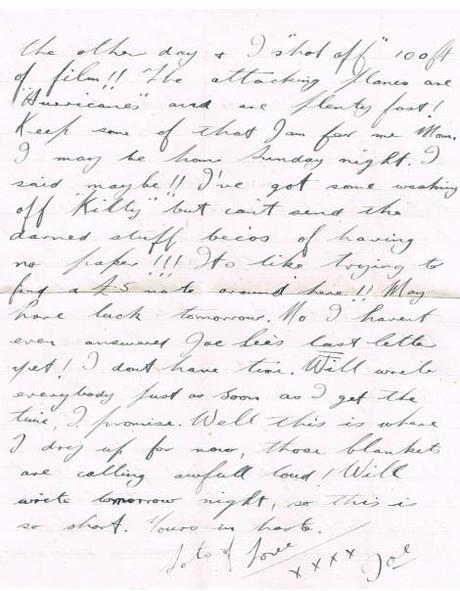 the other day & I "shot off" 100 ft
of film!! The attacking planes are
"Hurricanes" and are plenty fast!
Keep some of that Jam for me Mom.
I may be home Sunday night. I
said maybe!! I've got some washing
off "Kitty" but can't send the
darned stuff becos of having
no paper!!! Its like trying to
find a £5 note around here!! May
have luck tomorrow. No I havent
even answered Joe Lee's last letter
yet! I dont have time. Will write
everybody just as soon as I get the
time, I promise. Well this is where
I dry up for now, those blankets
are calling awfull loud! Will
write tomorrow night, so this is
so short. Yours in haste.
Lots of Love
xxxx Joe